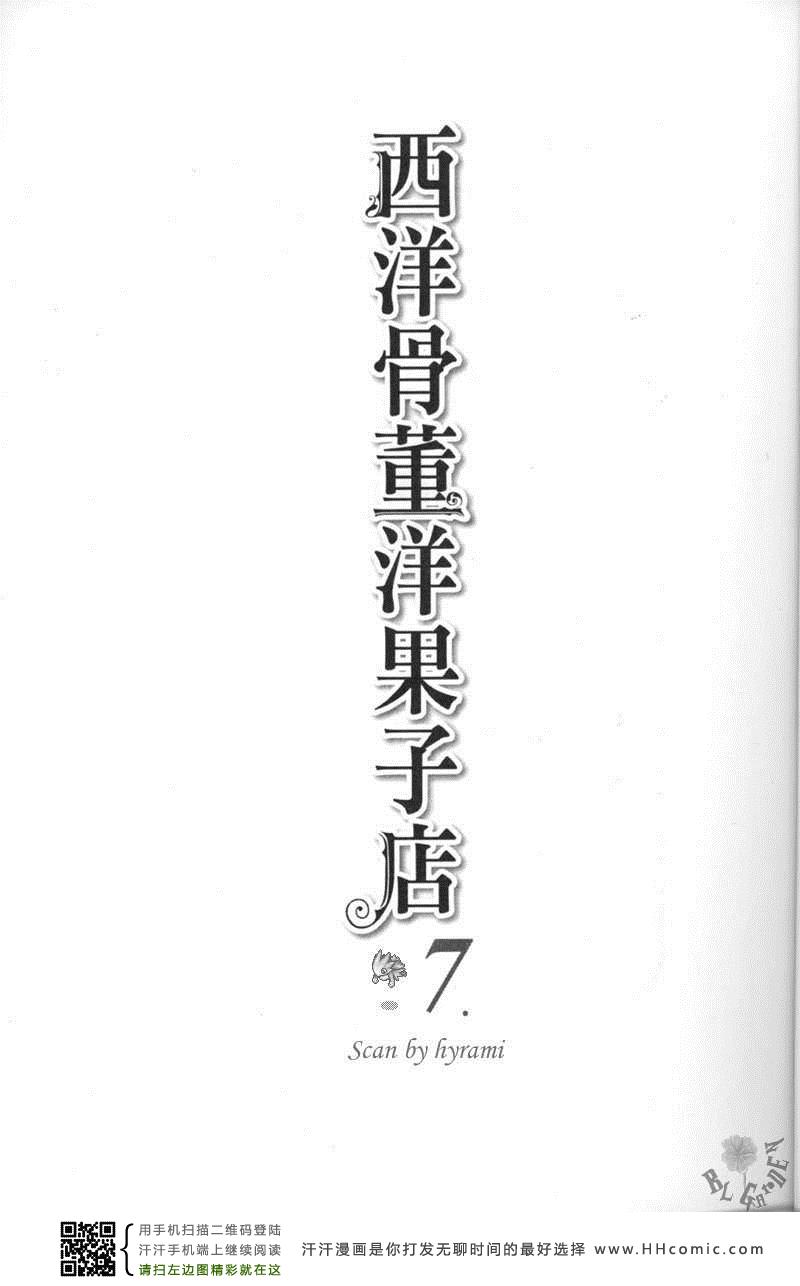 西洋骨董洋果子店
7.
Scan by hyrami
BL GARDEN
用手机扫描二维码登陆
汗汗手机端上继续阅读
请扫左边图精彩就在这
汗汗漫画是你打发无聊时间的最好选择 www.HHcomic.com